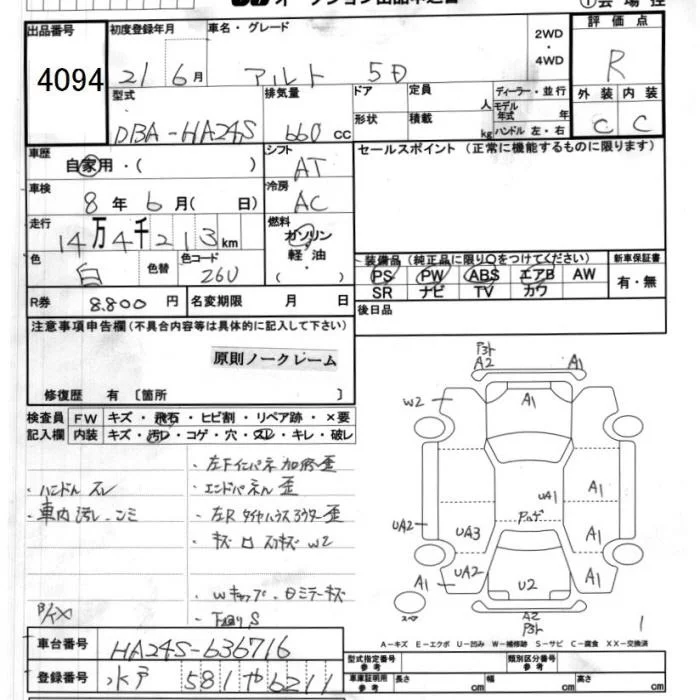 出品番号
4094
初度登録年月
21 6月
車名・グレード
アルト 5D
2WD
・
4WD
評価点
R
型式
DBA-HA24S
排気量
660 cc
ドア
形状
定員
人
積載
kg
ディーラー・並行
モデル
年式 年
ハンドル 左・右
外装 内装
C C
車歴
自家用・( )
シフト
AT
セールスポイント (正常に機能するものに限ります)
車検
8年 6月( 日)
冷房
AC
走行
14万4千213km
燃料
ガソリン
軽油
・
( )
色
白
色替
色コード
26U
装備品 (純正品に限り○をつけてください)
PS PW ABS エアB AW
SR ナビ TV カワ
新車保証書
有・無
R券 8.800 円
名変期限 月 日
後日品
注意事項申告欄(不具合内容等は具体的に記入して下さい)
原則ノークレーム
修復歴 有〔箇所 〕
検査員 FW キズ・飛石・ヒビ割・リペア跡・×要
記入欄 内装 キズ・汚レ・コゲ・穴・スレ・キレ・破レ
・ハンドル スレ
・車内汚レ
・左Fインパネ 加修歪
・エンドパネル 歪
・左R タイヤハウス アウター歪
W2
・下廻り S
A2 A1
W2 A1
UA1 A1
UA2 UA3 A1
A1 UA2 U2 A1
スペア
A2
1
A-キズ E-エクボ U-凹み W-補修跡 S-サビ C-腐食 XX-交換済
車台番号 HA24S-636716
登録番号 水戸 581 や 6211
型式指定番号
参考
類別区分番号
参考
車庫証明用
参考
長さ cm 幅 cm 高さ cm